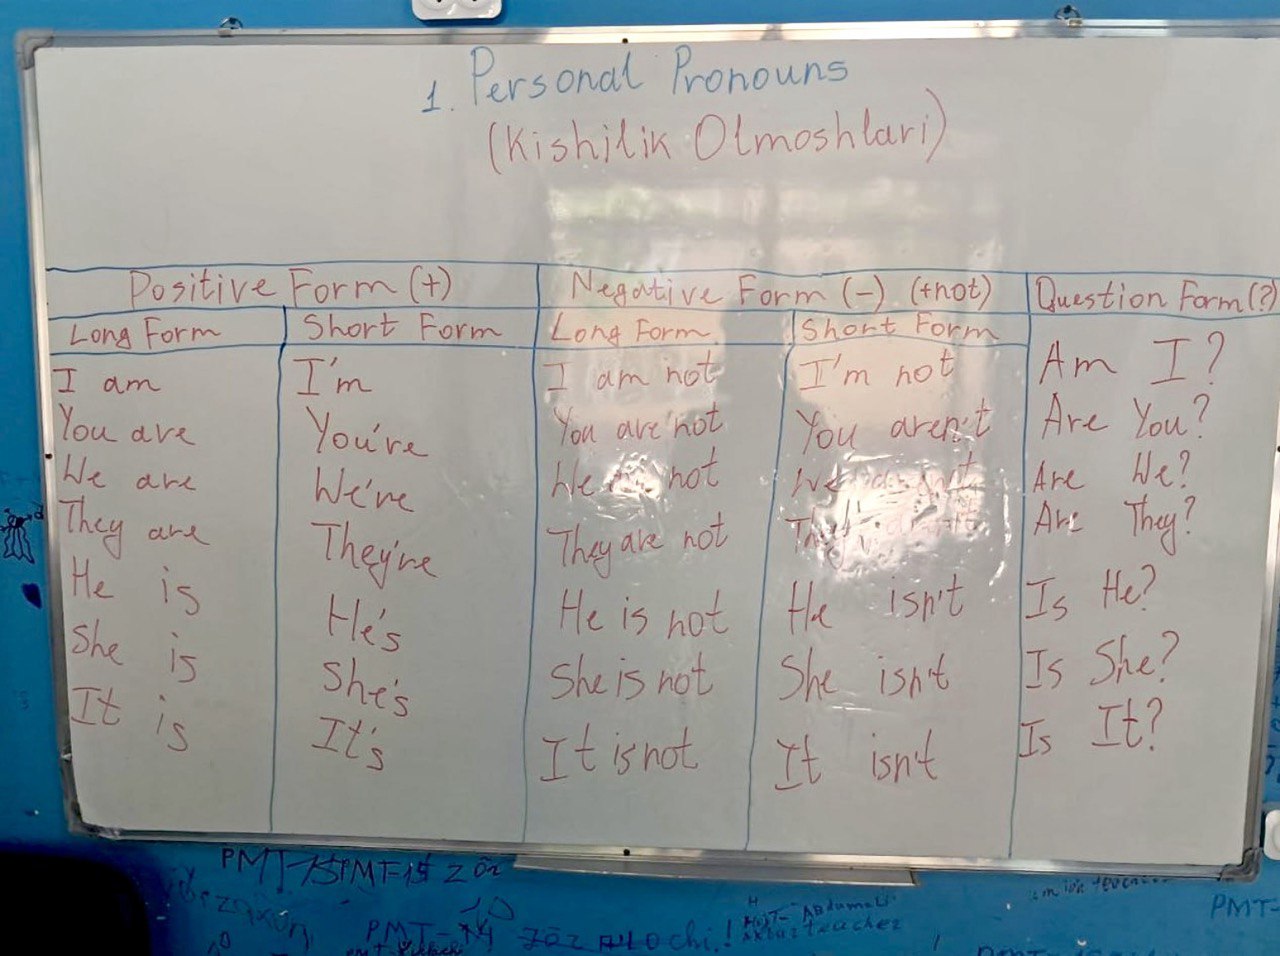 1. Personal Pronouns
(Kishilik Olmoshlari)
Positive Form (+) Negative Form (-) (+not) Question Form (?)
Long Form Short Form Long Form Short Form
I am I'm I am not I'm not Am I?
You are You're You are not You aren't Are You?
We are We're We not We Are We?
They are They're They are not They Are They?
He is He's He is not He isn't Is He?
She is She's She is not She isn't Is She?
It is It's It is not It isn't Is It?
PMT-15 PMT-15 zo'r
PMT-
teacher
PMT-